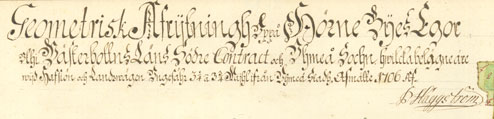 Geometrisk Afrijtningh Uppå Hörne Byes Egor
uthi Wästerbottns Läns Södre Contract och Uhmeå Sochn, hwilka belägne äre
wid Hafssiön och Landswägen Ungefähr 3/4 a 3/4 Mijhl ifrån Uhmeå Stadh, Afmätte 1706 Af.
Häggström